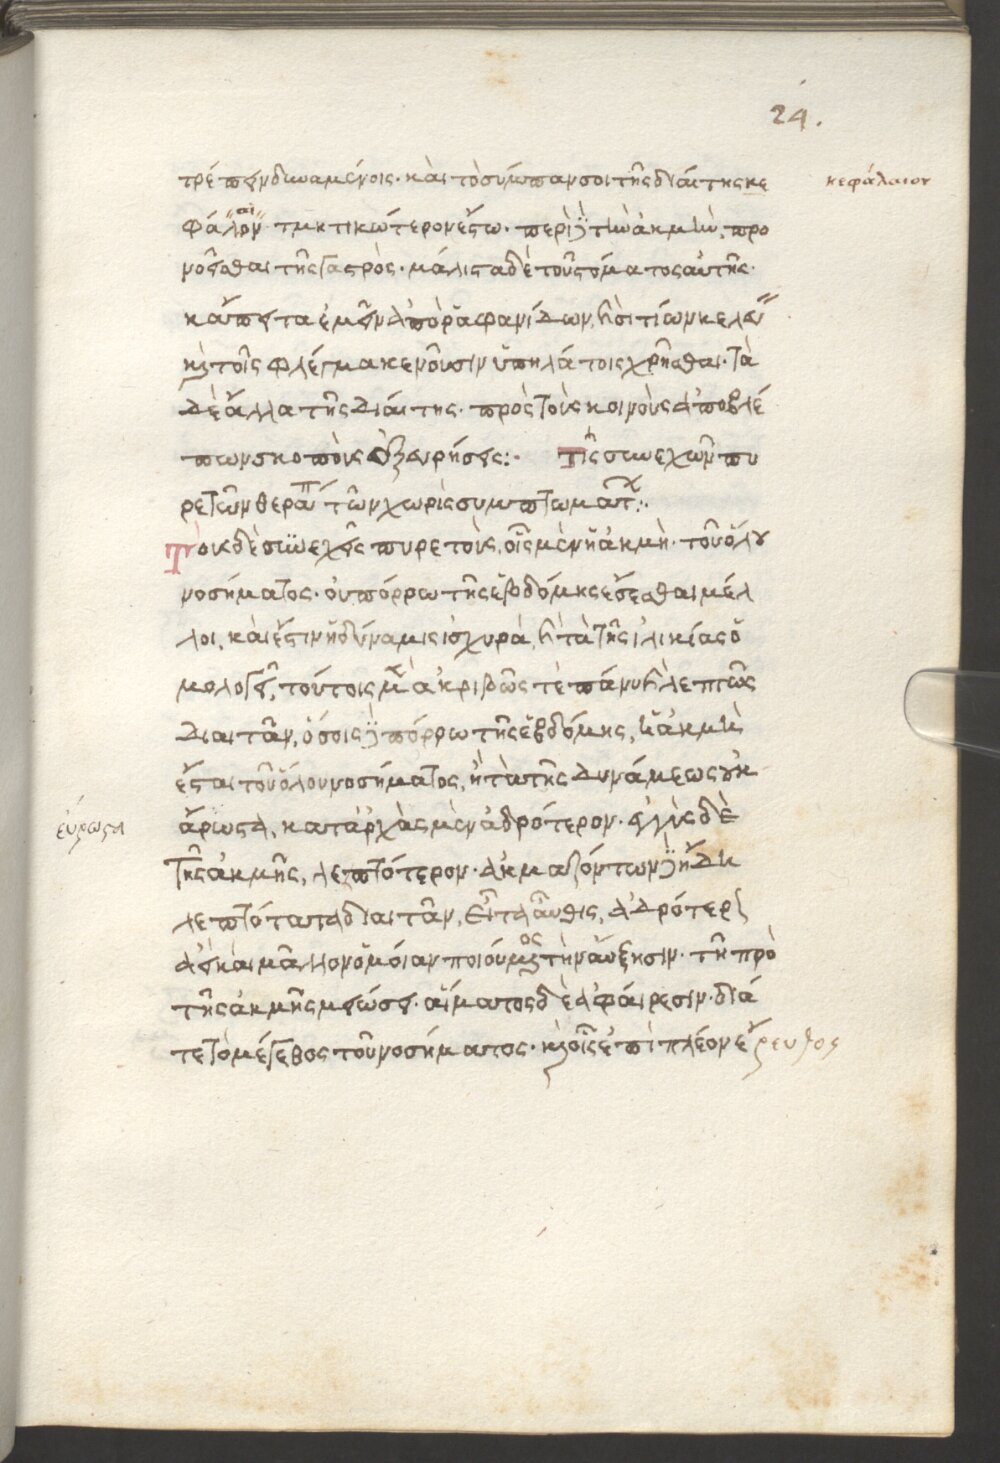 24.
τρέπειν δυναμένοις· καὶ τὸ σύμπαν σοι τῆς διαίτης κε
κεφάλαιον
φάλαιον τμητικώτερον ἔστω· περὶ δὲ τὴν ἀκμὴν, προ
νοεῖσθαι τῆς γαστρὸς· μάλιστα δὲ τοῦ στόματος αὐτῆς·
κἄπειτα ἐμεῖν ἀπὸ ῥαφανίδων, καὶ σιτίων κελεύ
καὶ τοῖς φλέγμα κενοῦσιν ὑπηλάτοις χρῆσθαι· τὰ
δὲ ἄλλα τῆς διαίτης· πρὸς τοὺς κοινοὺς ἀποβλέ
πων σκοποὺς ἐξευρήσεις:· τῆς συνεχῶν πυ
ρετῶν θεραπεί τῶν χωρὶς συμπτωμάτ:·
Τοὺς δὲ συνεχεῖς πυρετοὺς, οἷς μὲν ἡ ἀκμὴ· τοῦ ὅλου
νοσήματος· οὐ πόρρω τῆς ἑβδόμης ἔσεσθαι μέλ
λοι, καὶ ἔστιν ἡ δύναμις ἰσχυρά, καὶ τὰ τῆς ἡλικίας ὁ
μολογεῖ, τούτοις μὲν ἀκριβῶς τε πάνυ καὶ λεπτῶς
διαιτᾶν, ὅσοις δὲ πόρρω τῆς ἑβδόμης, ἡ ἀκμὴ
ἔσται τοῦ ὅλου νοσήματος, ἢ τὰ τῆς δυνάμεως οὐκ
εὔρωστα
ἄρωστα, κατ' ἀρχὰς μὲν ἁδρότερον· ἐγγὺς δὲ
τῆς ἀκμῆς, λεπτότερον· ἀκμαζόντων δὲ ἤδη
λεπτότατα διαιτᾶν, εἶτ' αὖθις, ἁδρότερον
ἀεὶ καὶ μᾶλλον ὁμοίαν ποιούμενος τὴν αὔξησιν· τῇ πρὸ
τῆς ἀκμῆς μειώσει· αἵματος δὲ ἀφαίρεσιν· διά
τε τὸ μέγεθος τοῦ νοσήματος· καὶ οἷς ἐπὶ πλέον ἔρευθος